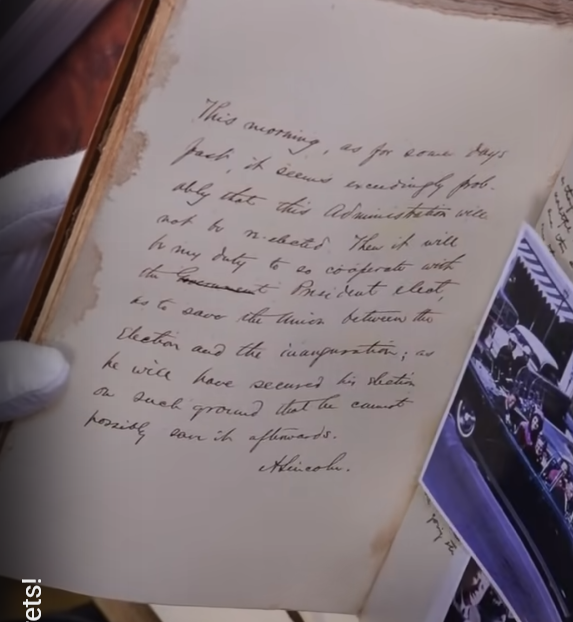 This morning, as for some days
past, it seems exceedingly prob-
ably that this Administration will
not be re-elected. Then it will
be my duty to so cooperate with
the Government President elect,
as to save the Union between the
election and the inauguration; as
he will have secured his election
on such ground that he cannot
possibly save it afterwards.
A Lincoln.
ets!